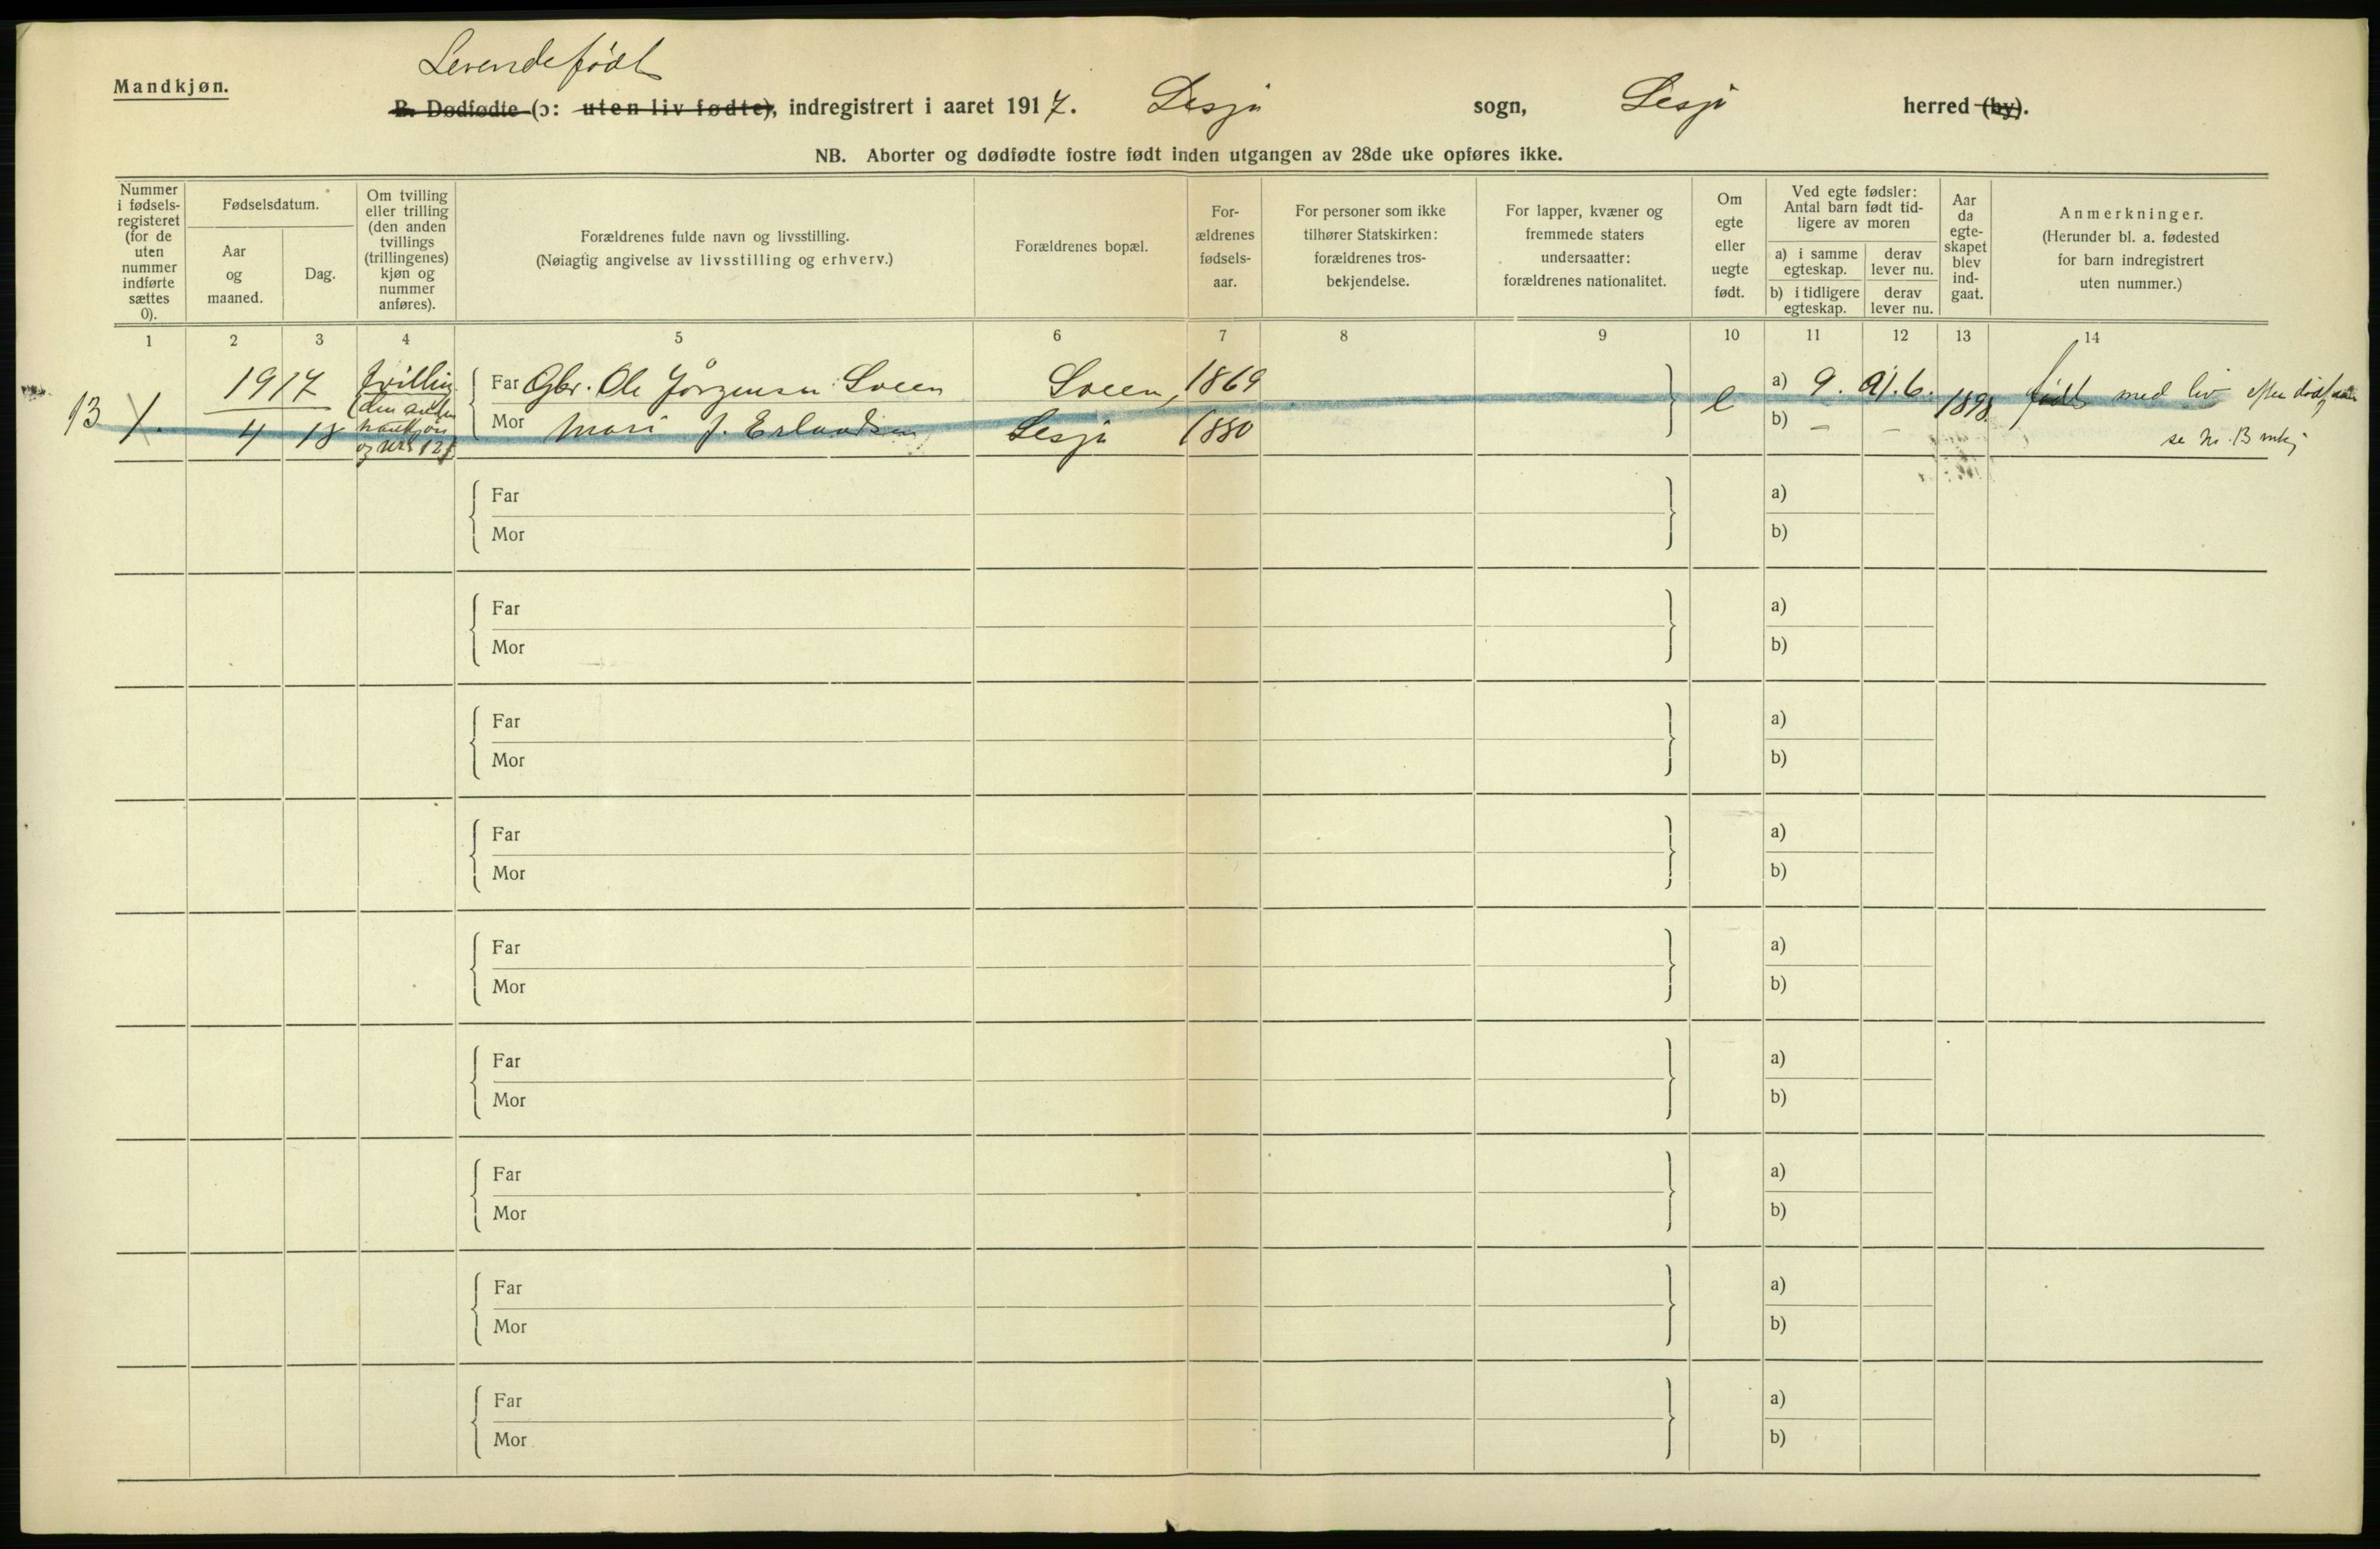 Levendefødt
Mandkjøn.
B. Dødfødte (ɔ: uten liv fødte), indregistrert i aaret 1917. Lesja sogn, Lesja herred (by).
NB. Aborter og dødfødte fostre født inden utgangen av 28de uke opføres ikke.
Nummer i fødselsregisteret (for de uten nummer indførte sættes 0).
Fødselsdatum.
Aar og maaned.
Dag.
Om tvilling eller trilling (den anden tvillings (trillingenes) kjøn og nummer anføres).
Forældrenes fulde navn og livsstilling.
(Nøiagtig angivelse av livsstilling og erhverv.)
Forældrenes bopæl.
Forældrenes fødselsaar.
For personer som ikke tilhører Statskirken: forældrenes trosbekjendelse.
For lapper, kvæner og fremmede staters undersaatter: forældrenes nationalitet.
Om egte eller uegte født.
Ved egte fødsler: Antal barn født tidligere av moren
a) i samme egteskap.
derav lever nu.
b) i tidligere egteskap.
derav lever nu.
Aar da egteskapet blev indgaat.
Anmerkninger.
(Herunder bl. a. fødested for barn indregistrert uten nummer.)
1 2 3 4 5 6 7 8 9 10 11 12 13 14
13 1. 1917 4 18
tvilling
(den anden
mankjøn
og nr. 12)
Far Gbr. Ole Jørgensen Sveen Sveen, 1869
Mor Mari J. Erlandsen Lesja 1880
e a) 9. a). 6. 1898
b) – –
født med liv efter
se Nr. 13 mkj
Far a)
Mor b)
Far a)
Mor b)
Far a)
Mor b)
Far a)
Mor b)
Far a)
Mor b)
Far a)
Mor b)
Far a)
Mor b)
Far a)
Mor b)
Far a)
Mor b)